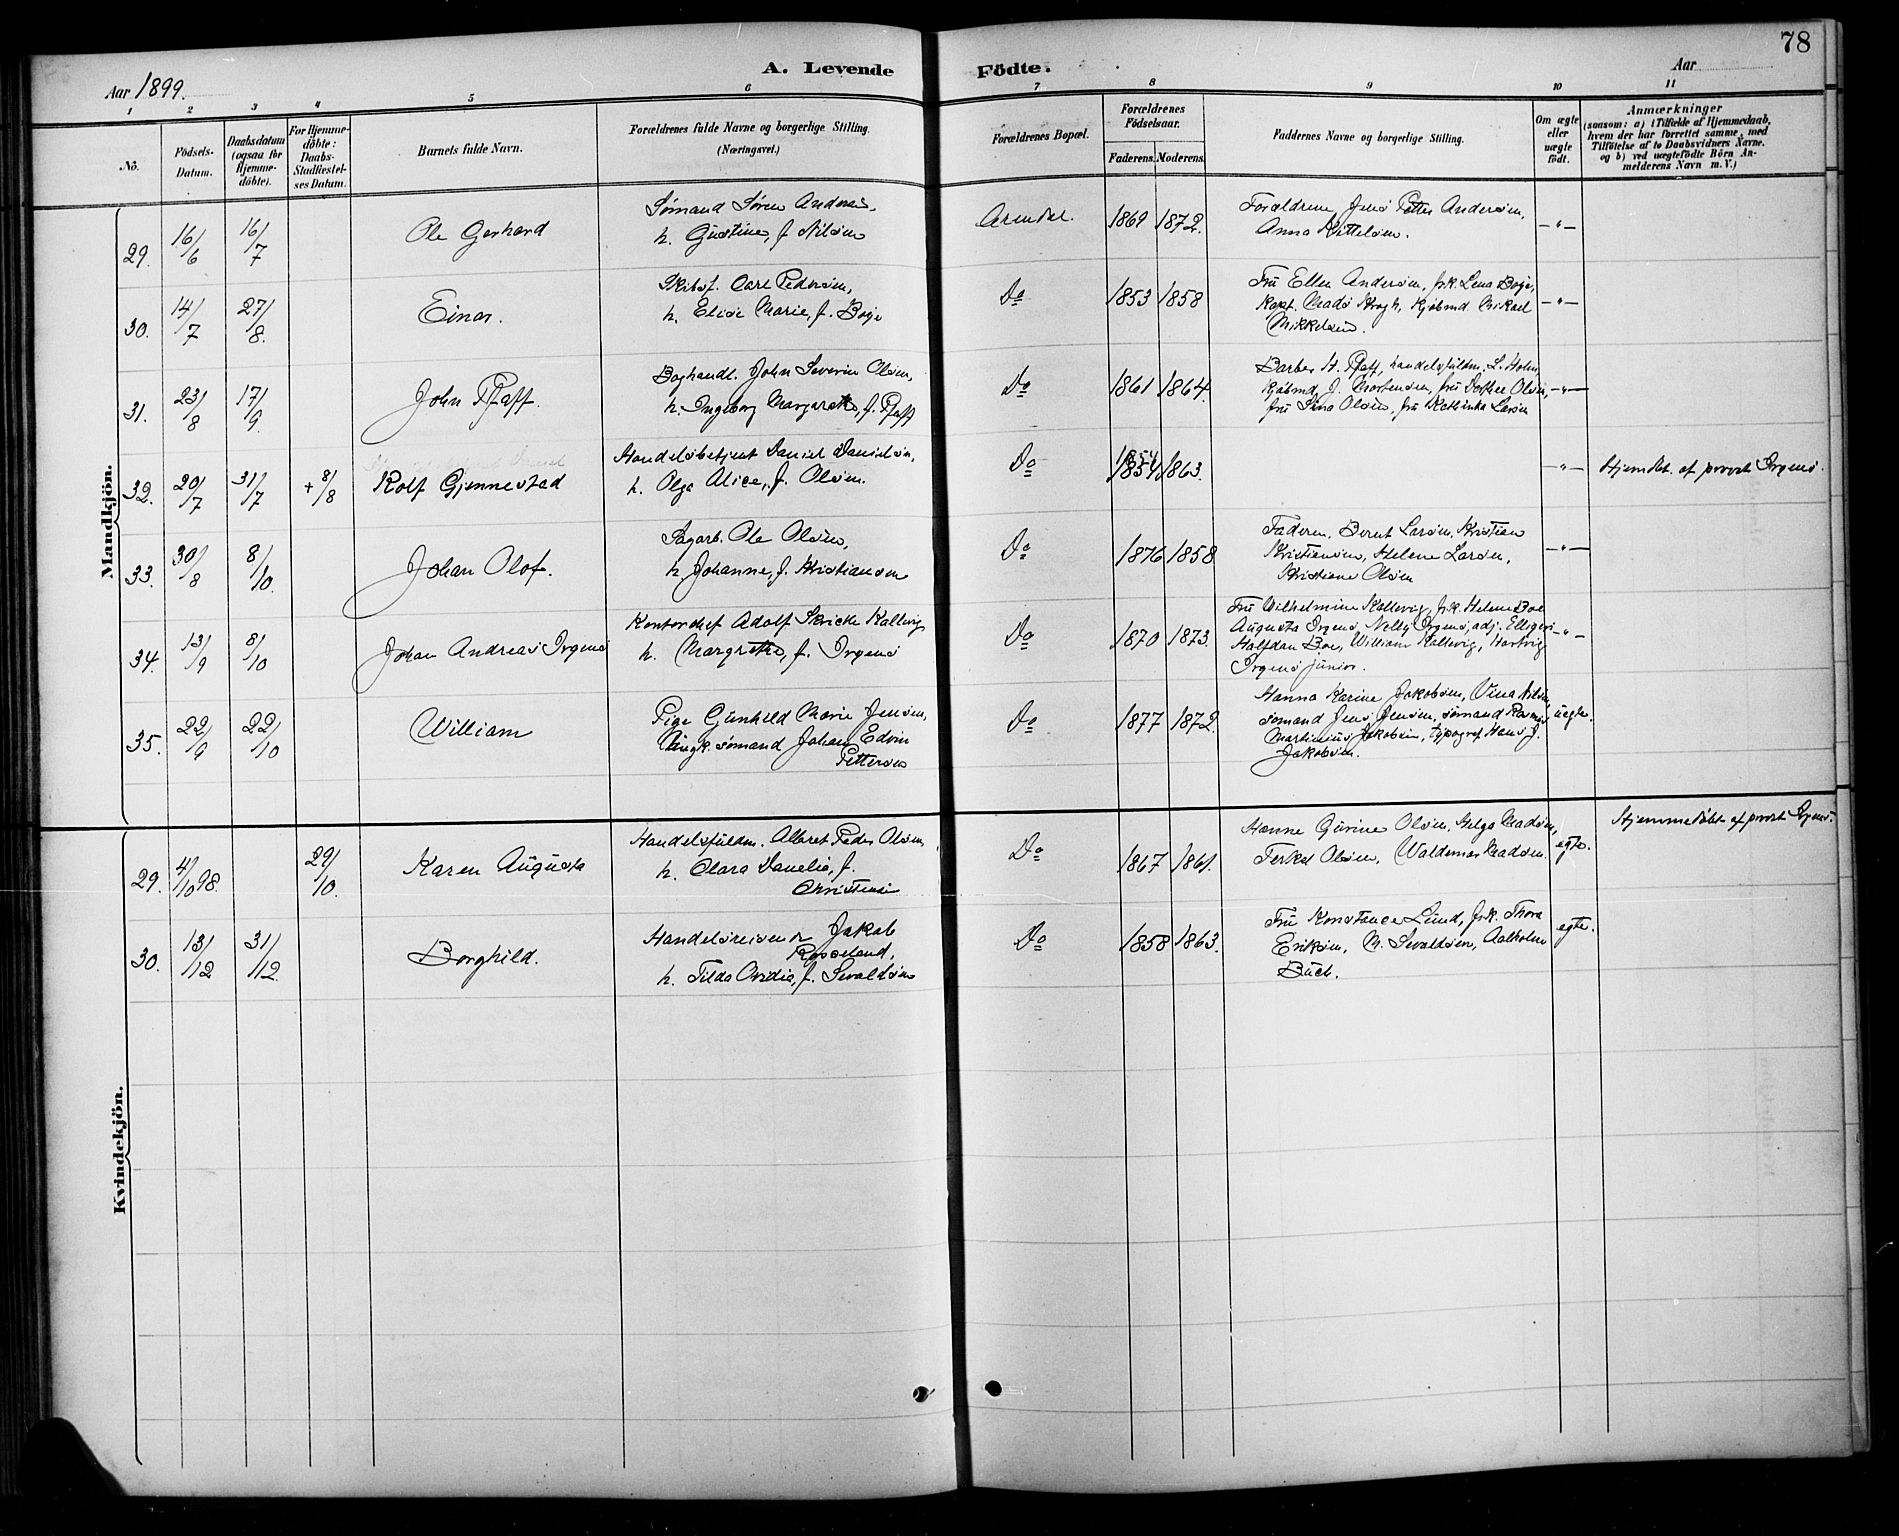 78
A. Levende Födte.
Aar 1899.
Aar
1 2 3 4 5 6 7 8 9 10 11
No.
Födsels-Datum.
Daabsdatum (ogsaa for Hjemme-döbte).
For Hjemme-döbte: Daabs-Stadfæstel-ses Datum.
Barnets fulde Navn.
Forældrenes fulde Navne og borgerlige Stilling. (Næringsvei.)
Forældrenes Bopæl.
Forældrenes Födselsaar.
Faderens. Moderens.
Faddernes Navne og borgerlige Stilling.
Om ægte eller uægte födt.
Anmærkninger
(saasom: a) i Tilfælde af Hjemmedaab,
hvem der har forrettet samme, med
Tilföielse af to Daabsvidners Navne,
og b) ved uægtefödte Börn An-
melderens Navn m. V.)
Mandkjön.
29. 16/6 16/7 Ole Gerhard
Sømand Søren Andersen,
h. Gustine, f. Nilsen
Arendal. 1869 1872.
Forældrene, Jens Petter Andersen,
Anna Kittelsen. —"—
30. 14/7 27/8. Einar.
Skibsf. Carl Pedersen,
h. Elise Marie, f. Boye
Do 1853 1858
Fru Ellen Andersen, frk. Lena Boye,
Kapt. Mads Krogh, Kjøbmd Mikael
Mikkelsen. —"—
31. 23/8 17/9. John Pfaff.
Boghandl. John Severin Olsen,
h. Ingeborg Margarethe, f. Pfaff
Do 1861 1864.
Barber H. Pfaff, handelsfuldm. L. Holm,
Kjøbmd J. Mortensen, fru Dorthea Olsen,
fru Sina Olsen, fru Kathinka Larsen —"—
32. 20/7 31/7 + 8/8 Rolf Gjennestad
Handelsbetjent Daniel Danielsen,
h. Olga Alice, f. Olsen.
Do 1854 1863.
—"— Hjemdbt. af provst Irgens.
33. 30/8 8/10. Johan Olof.
Sagarb. Ole Olsen,
h. Johanne, f. Kristiansen
Do 1876 1858
Faderen, Bernt Larsen, Kristian
Kristiansen, Helene Larsen,
Kristiane Olsen —"—
34. 13/9 8/10 Johan Andreas Irgens
Kontorchef Adolf Kallevig
h. Margrethe, f. Irgens
Do 1870 1873.
Fru Wilhelmine Kallevig, frk. Helene Boe
Augusta Irgens, Nelly Irgens, adj. Elligers
Halfdan Boe, William Kallevig, Hartvig
Irgens junior. —"—
35. 22/9 22/10 William
Pige Gunhild Marie Jensen,
Ungk. sømand Johan Edvin
Pettersen
Do 1877 1872.
Hanna Karine Jakobsen, Vina Nilsen
sømand Jens Jensen, sømand Rasmus
Martinius Jakobsen, typograf Hans J.
Jakobsen. uegte.
Kvindekjön.
29. 4/10 98. 29/10. Karen Augusta
Handelsfuldm. Albert Peder Olsen,
h. Clara Danelia, f.
Christensen
Do 1867 1861.
Hanne Gurine Olsen, Helga Madsen,
Terkel Olsen, Waldemar Madsen. egte.
Hjemmedøbt af provst Irgens.
30. 13/12 31/12 Borghild.
Handelsreisende Jakob
Rosseland,
h. Tilda Ovidia, f. Sevaldsen
Do 1858 1863.
Fru Konstance Lund, frk. Thora
Eriksen, M. Sevaldsen, Aalholm
Buch. egte.